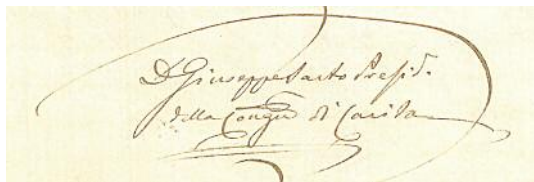 D. Giuseppe Sarto Presid.
della Cong.ne di Carità